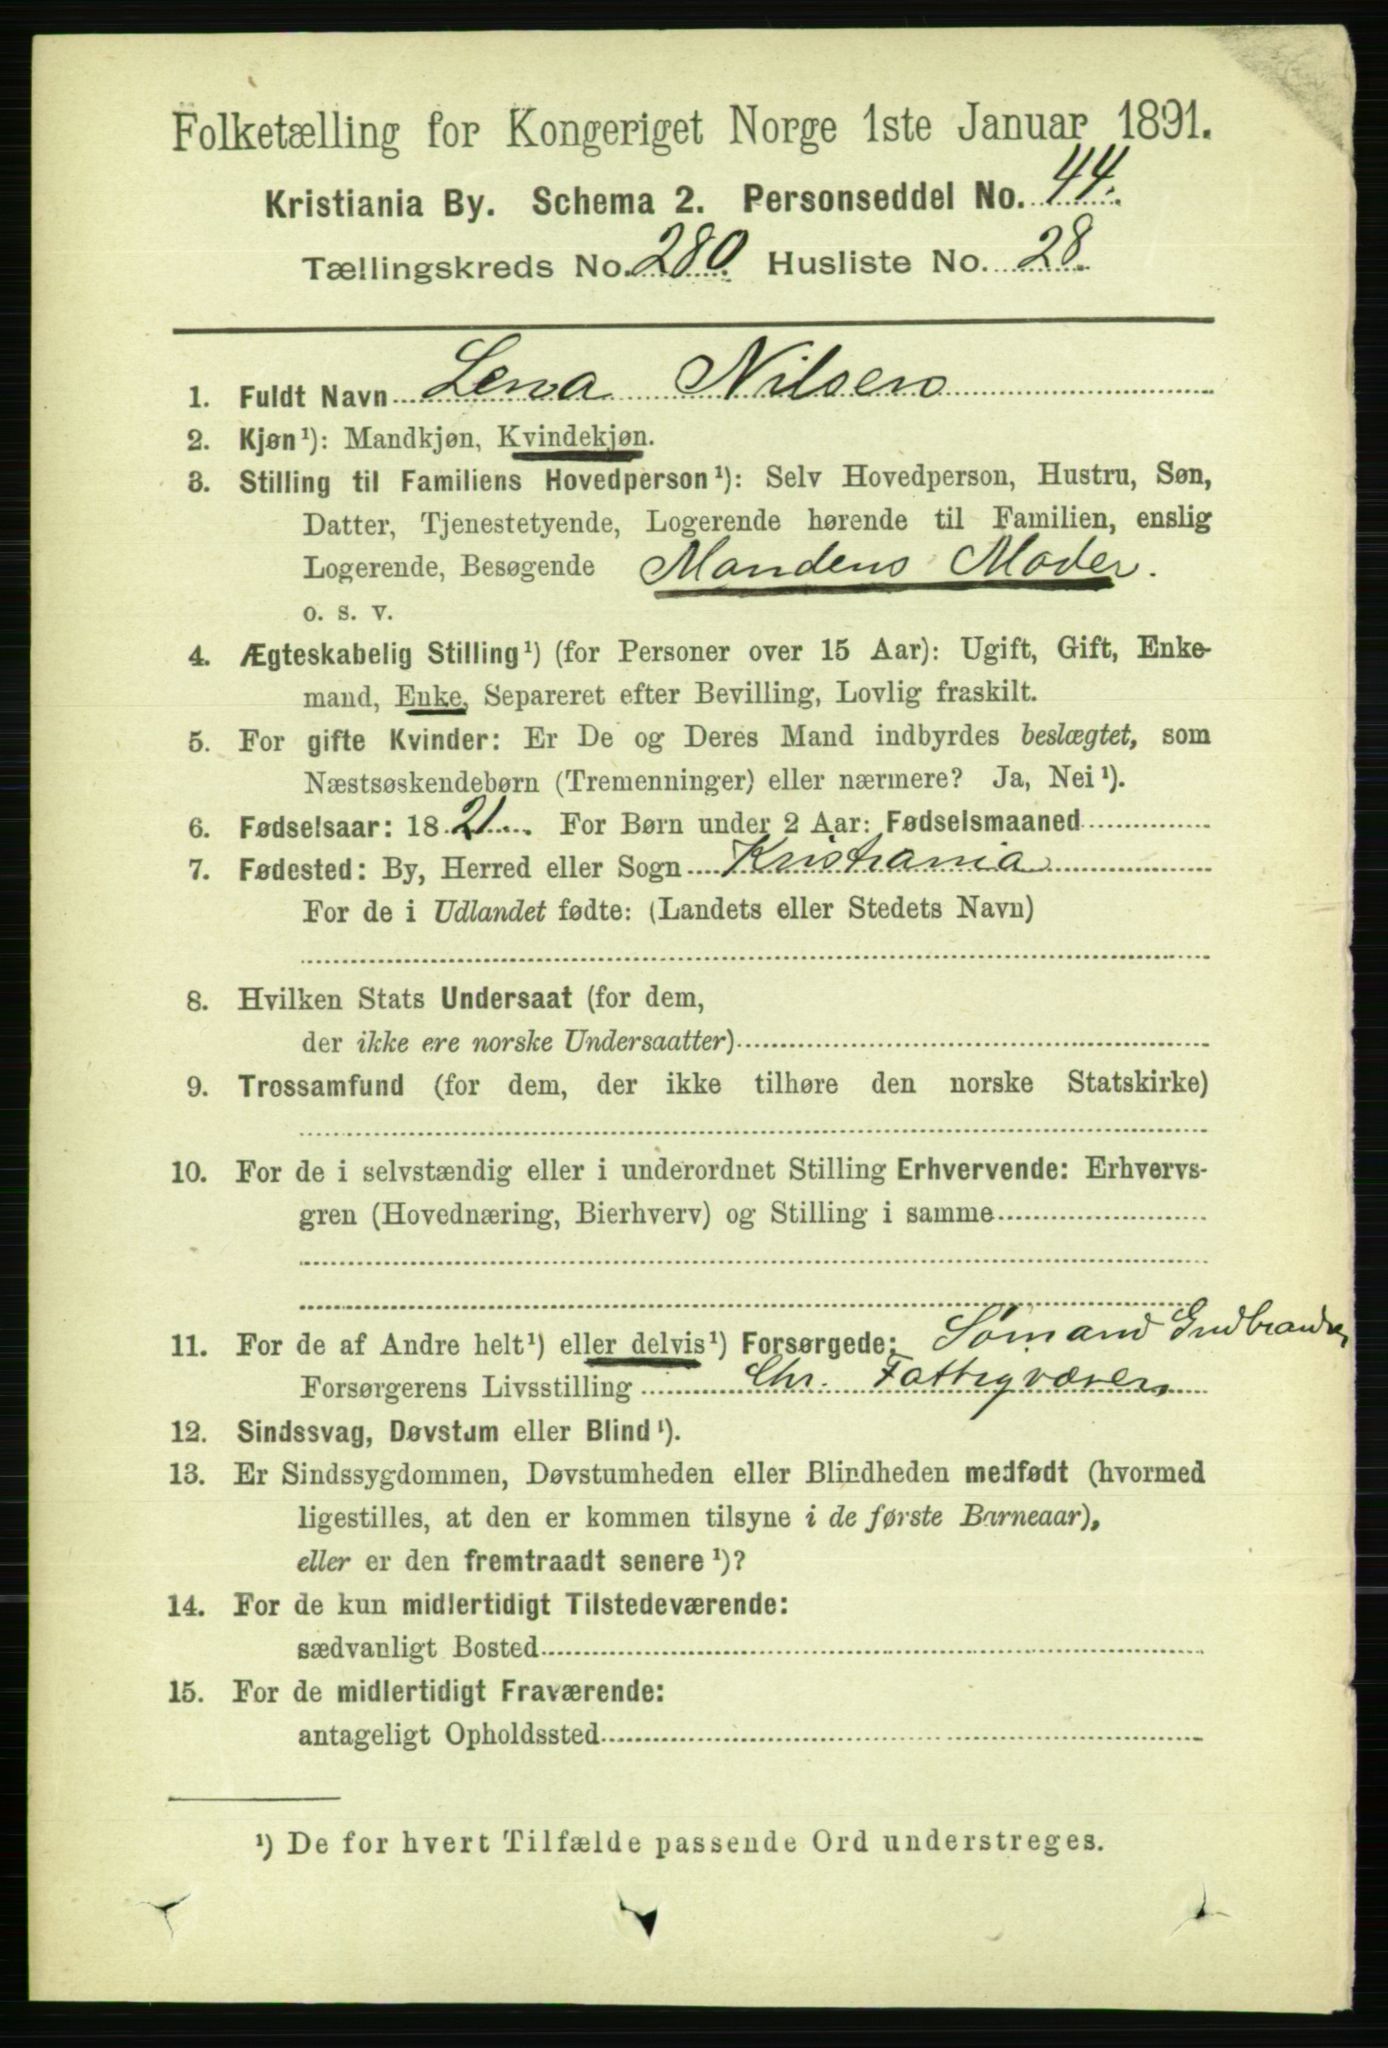 Folketælling for Kongeriget Norge 1ste Januar 1891.
Kristiania By. Schema 2. Personseddel No. 44.
Tællingskreds No. 280. Husliste No. 28.
1. Fuldt Navn Lena Nilsen
2. Kjøn¹): Mandkjøn, Kvindekjøn.
3. Stilling til Familiens Hovedperson¹): Selv Hovedperson, Hustru, Søn,
Datter, Tjenestetyende, Logerende hørende til Familien, enslig
Logerende, Besøgende Mandens Moder.
o. s. v.
4. Ægteskabelig Stilling¹) (for Personer over 15 Aar): Ugift, Gift, Enke-
mand, Enke, Separeret efter Bevilling, Lovlig fraskilt.
5. For gifte Kvinder: Er De og Deres Mand indbyrdes beslægtet, som
Næstsøskendebørn (Tremenninger) eller nærmere? Ja, Nei¹).
6. Fødselsaar: 1821. For Børn under 2 Aar: Fødselsmaaned
7. Fødested: By, Herred eller Sogn Kristiania
For de i Udlandet fødte: (Landets eller Stedets Navn)
8. Hvilken Stats Undersaat (for dem,
der ikke ere norske Undersaatter)
9. Trossamfund (for dem, der ikke tilhøre den norske Statskirke)
10. For de i selvstændig eller i underordnet Stilling Erhvervende: Erhvervs-
gren (Hovednæring, Bierhverv) og Stilling i samme
11. For de af Andre helt¹) eller delvis¹) Forsørgede: Sømand Gudbrandsen
Forsørgerens Livsstilling Chr. Fattigvæsen
12. Sindssvag, Døvstum eller Blind¹).
13. Er Sindssygdommen, Døvstumheden eller Blindheden medfødt (hvormed
ligestilles, at den er kommen tilsyne i de første Barneaar),
eller er den fremtraadt senere¹)?
14. For de kun midlertidigt Tilstedeværende:
sædvanligt Bosted
15. For de midlertidigt Fraværende:
antageligt Opholdssted
¹) De for hvert Tilfælde passende Ord understreges.